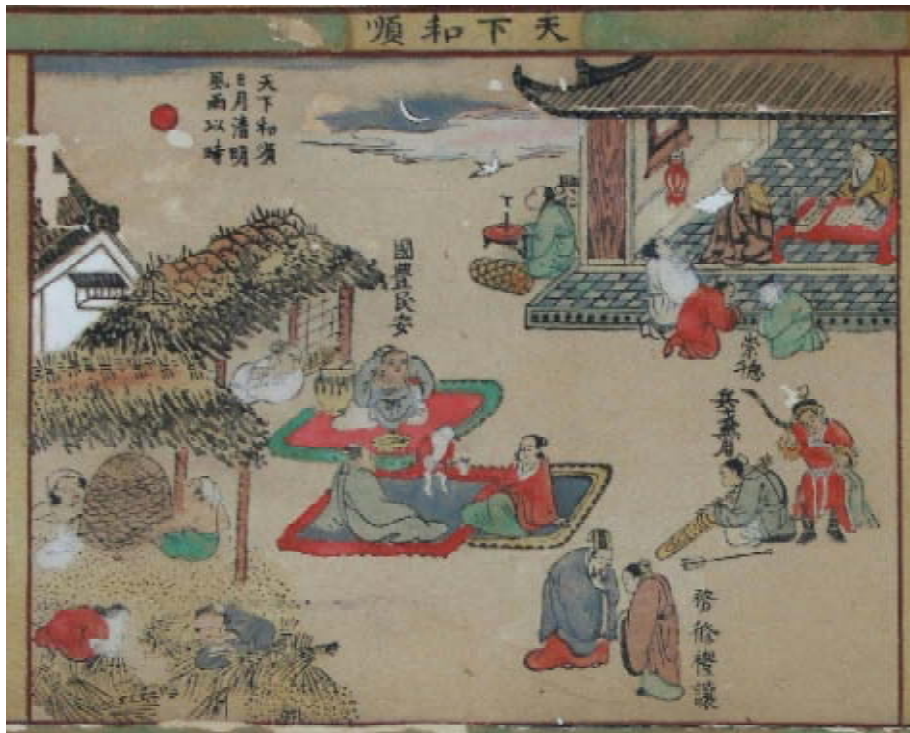 天下和順
天下和順
日月清明
風雨以時
興仁
國豊民安
崇徳
兵戈無用
務修禮讓